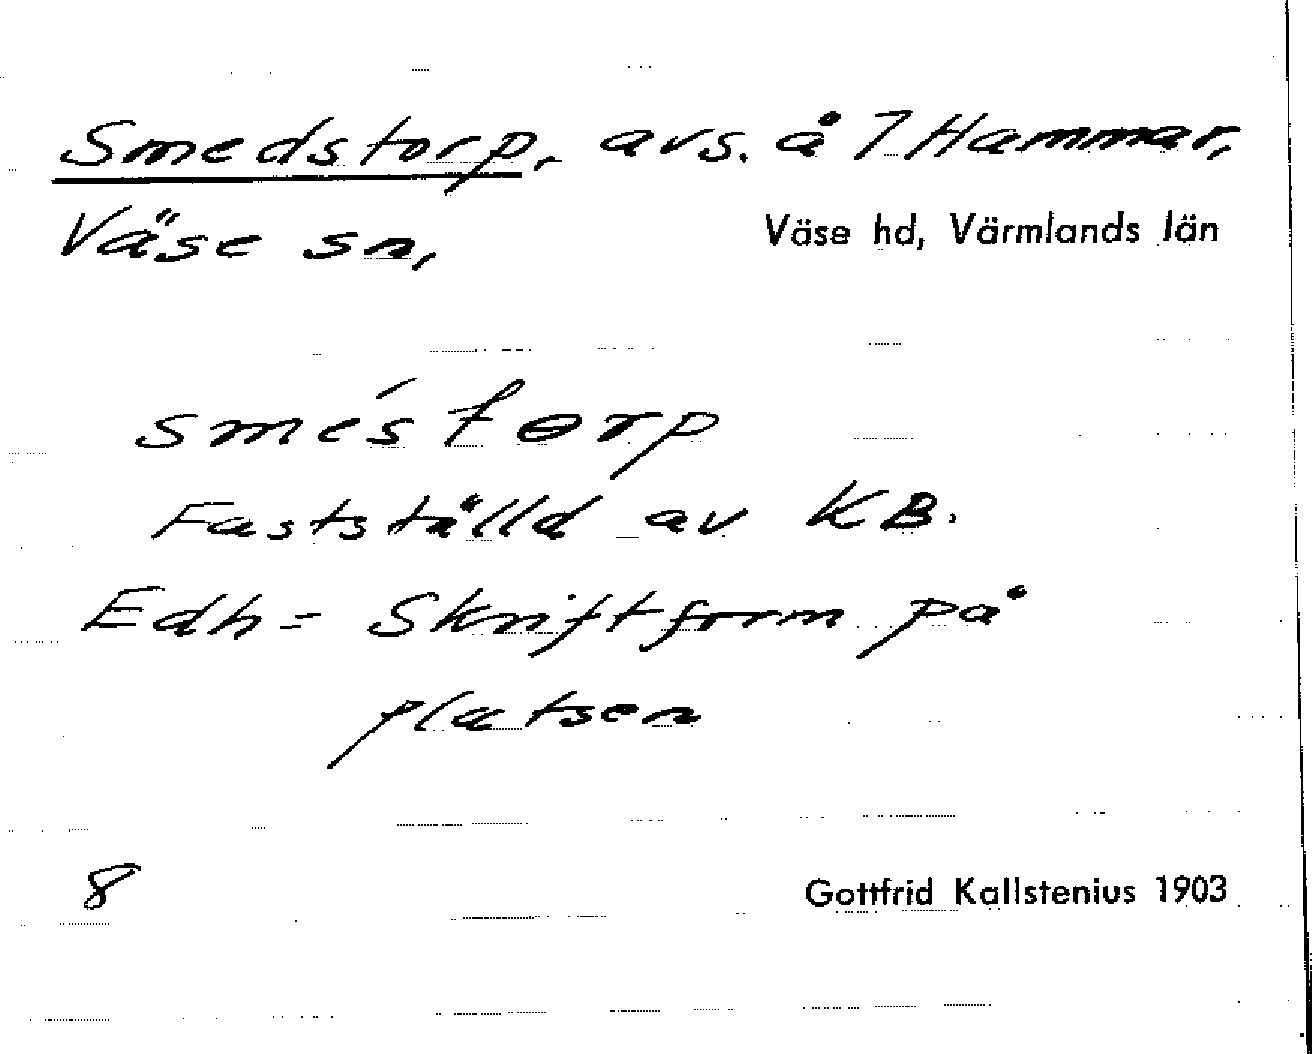 Smedstorp, avs. å 7 Hammar,
Väse sn, Väse hd, Värmlands län
smés tɵrp
Fastställd av KB.
Edh = Skriftform på
platsen
8 Gottfrid Kallstenius 1903